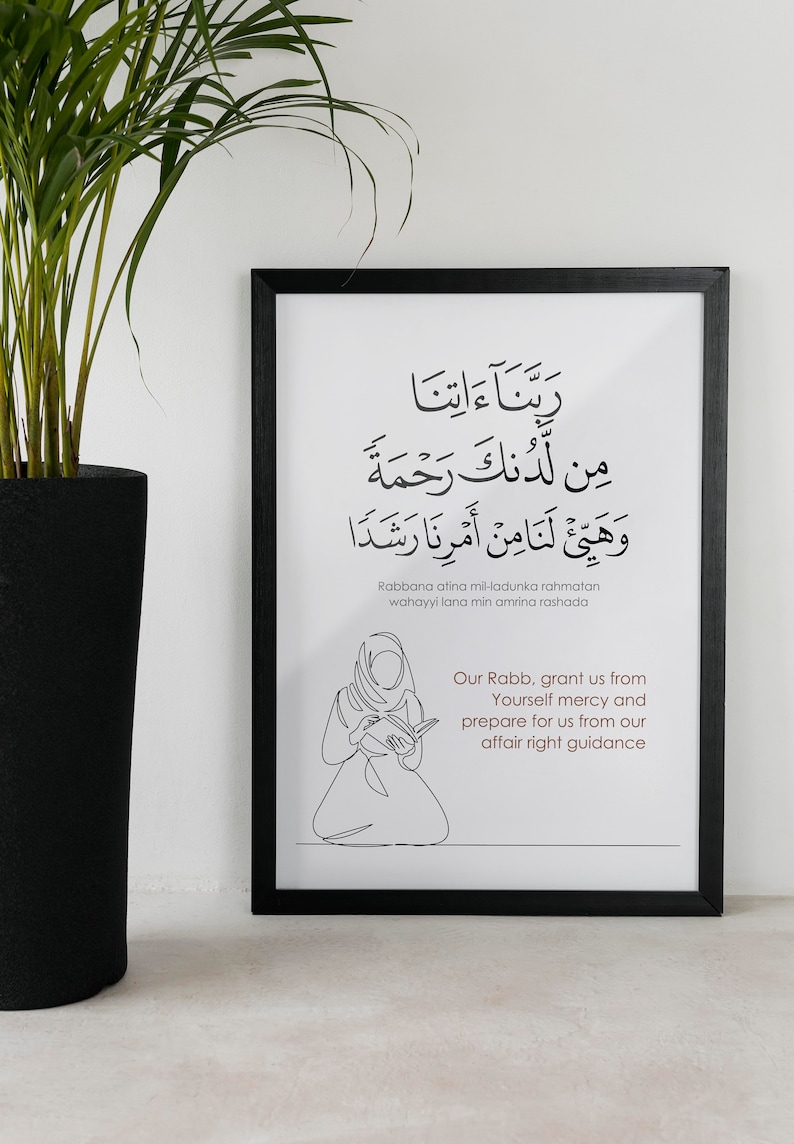 رَبَّنَآ ءَاتِنَا
مِن لَّدُنكَ رَحْمَةً
وَهَيِّئْ لَنَا مِنْ أَمْرِنَا رَشَدًا
Rabbana atina mil-ladunka rahmatan
wahayyi lana min amrina rashada
Our Rabb, grant us from
Yourself mercy and
prepare for us from our
affair right guidance